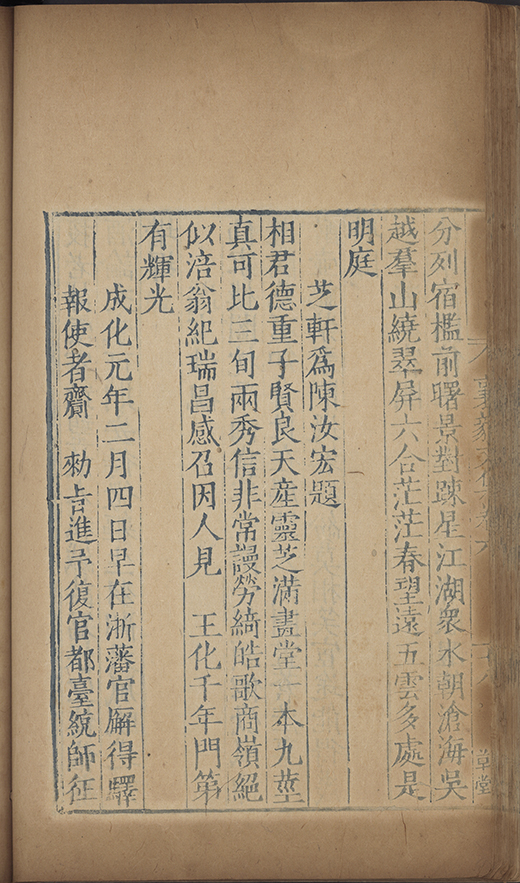 分列宿檻前曙景對踈星江湖衆水朝滄海吳
越羣山繞翠屏六合茫茫春望遠五雲多處是
明庭
芝軒爲陳汝宏題
相君德重子賢良天産靈芝滿畫堂一本九莖
真可比三旬兩秀信非常謾勞綺皓歌商嶺絕
似涪翁紀瑞昌感召因人見 王化千年門第
有輝光
成化元年二月四日早在浙藩官廨得驛
報使者齎 勑㫖進予復官都臺統師征